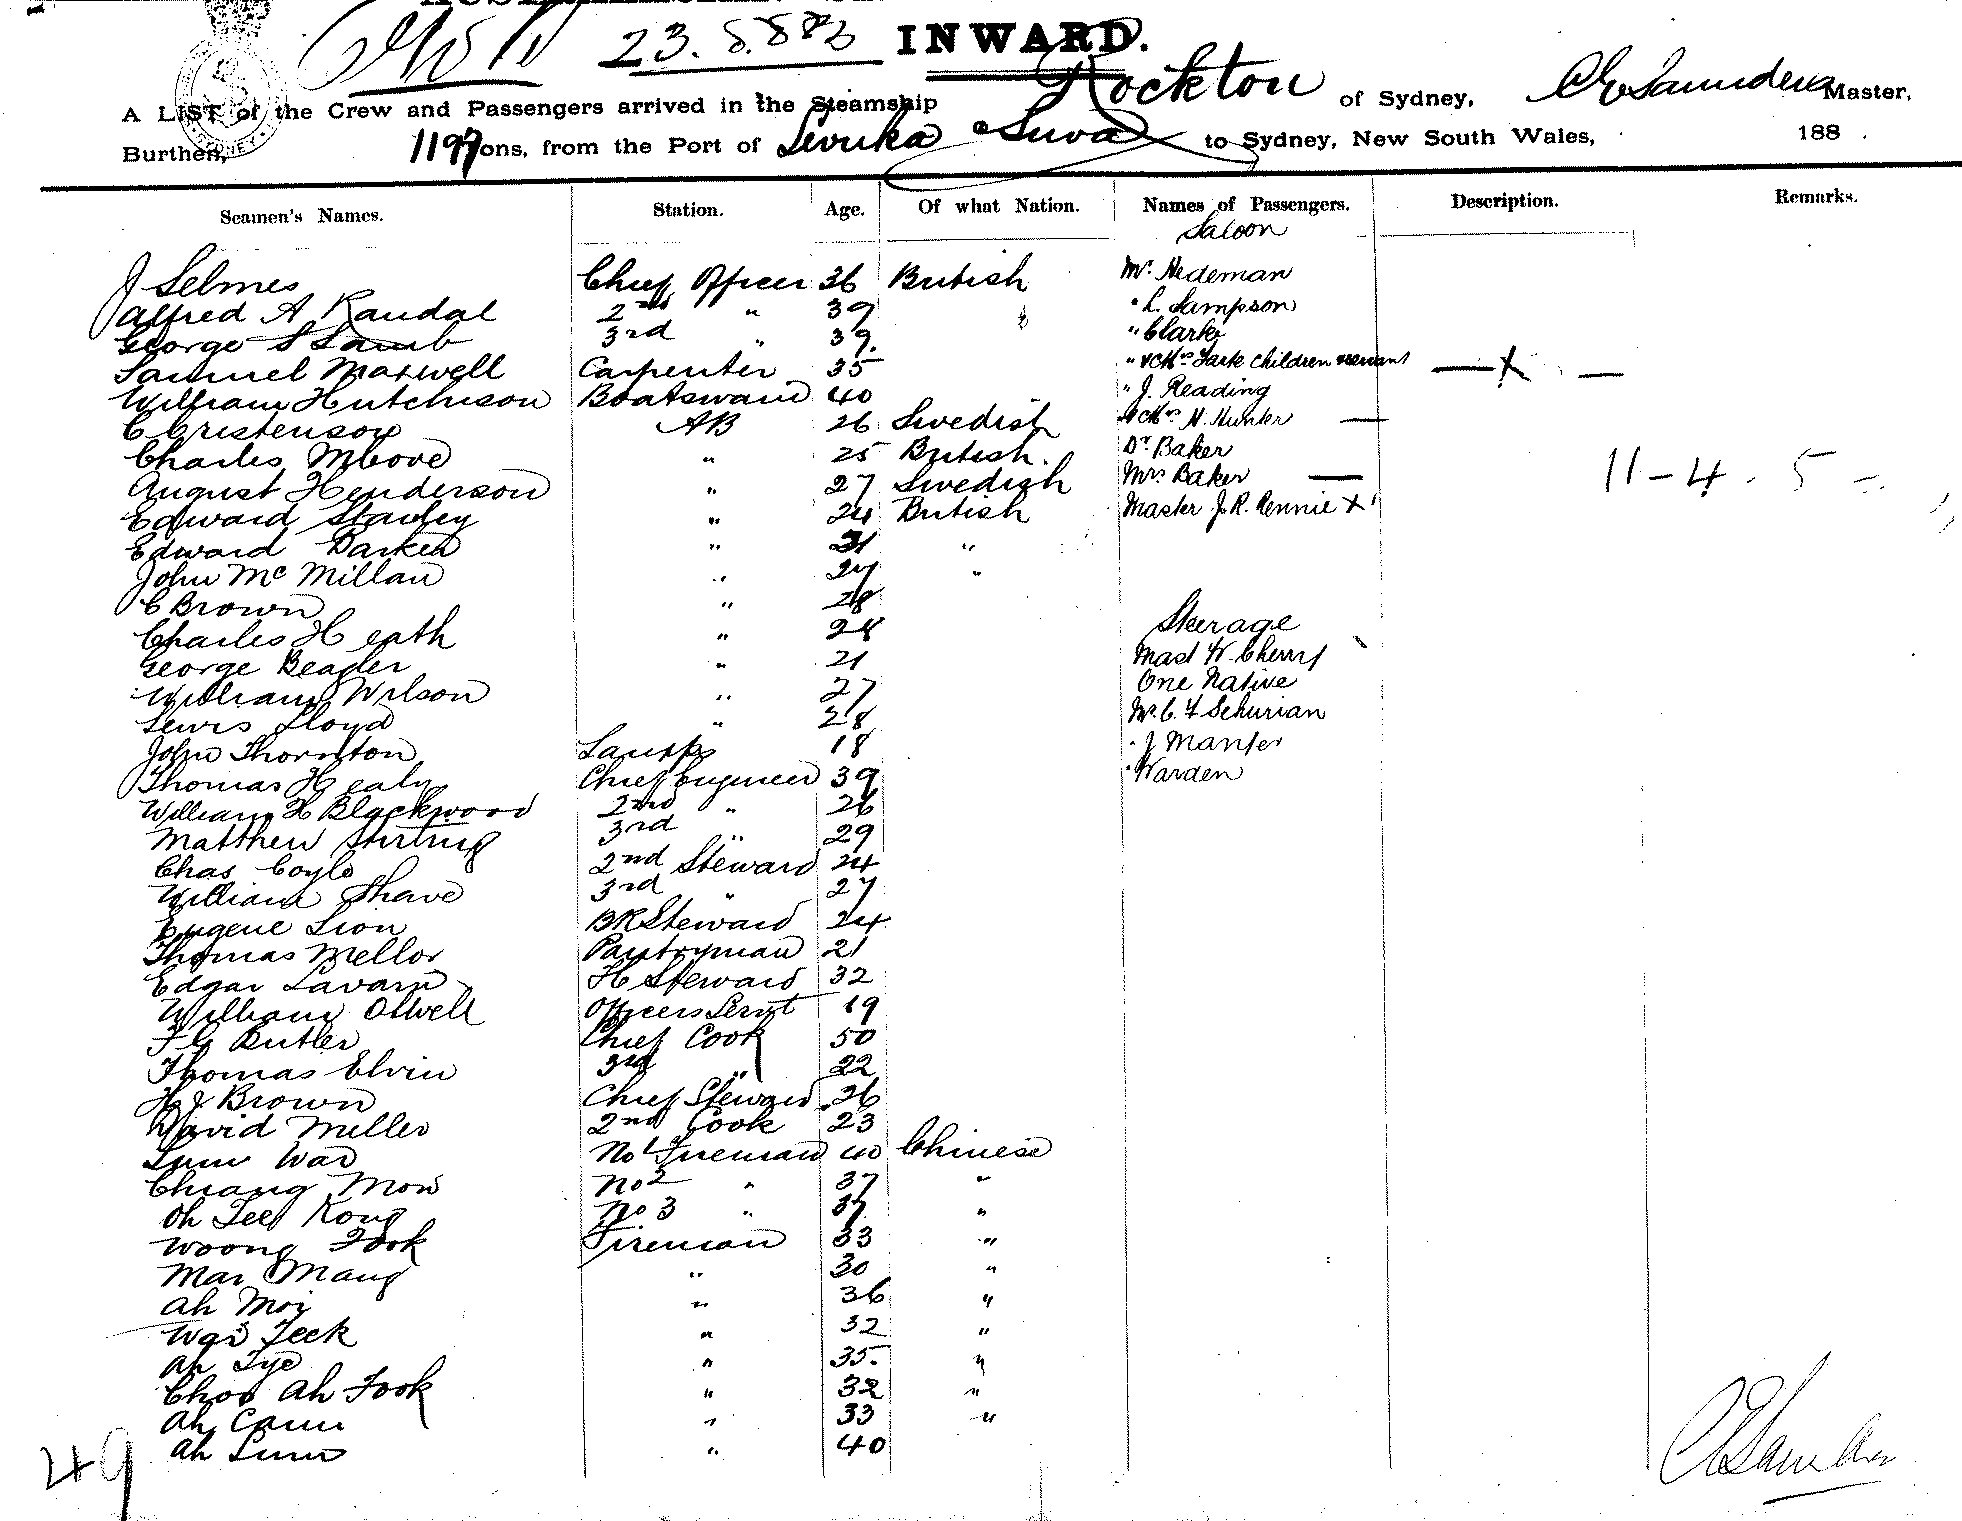 23.8.883 INWARD.
A LIST of the Crew and Passengers arrived in the Steamship Rockton of Sydney, C E Saunders Master,
Burthen, 1197 Tons, from the Port of Levuka Suva to Sydney, New South Wales, 188 .
Seamen's Names. Station. Age. Of what Nation. Names of Passengers. Description. Remarks.
Saloon
J Selmes Chief Officer 36 British Mr. Hedeman
Alfred A Randal 2nd " 39 " L. Sampson
George S Lamb 3rd " 39. " Clarke
Samuel Maxwell Carpenter 35 " & Mrs children & servant — X —
William Hutchison Boatswain 40 " J. Reading
C Cristenson AB 26 Swedish & Mrs H. Hunter —
Charles Moore " 25 British. Dr Baker
August Henderson " 27 Swedish Mrs Baker — 11 - 4 . 5
Edward Stanley " 24 British Master J. R. Rennie X
Edward Barker " 21 "
John Mc Millan " 27 "
C Brown " 28 Steerage
Charles Heath " 28
George Beagler " 21 Mast W. Cherry
William Wilson " 27 One Native
Lewis Lloyd " 28 Mr. C. F Schurian
John Thornton Lamps 18 " J Manser
Thomas Healy Chief Engineer 39 " Warden
William H Blackwood 2nd " 26
Matthew Stirling 3rd " 29
Chas Coyle 2nd Steward 24
William Shave 3rd " 27
Eugene Lion BR Steward 24
Thomas Mellor Pantryman 21
Edgar Lavarn H Steward 32
William Otwell Officers Servt 19
F G Butler Chief Cook 50
Thomas Elvin 3rd " 22
H J Brown Chief Steward 26
David Miller 2nd Cook 23
Lum War No 1 Fireman 40 Chinese
Chiang Mow No 2 " 37 "
Oh Tee Kong No 3 " 37 "
Woong Fook Fireman 33 "
Mar Mang " 30 "
Ah Moy " 36 "
War Teck " 32 "
Ah Tye " 35. "
Choo Ah Fook " 32 "
Ah Cam " 33 "
Ah Lum " 40
49
C E Saunders